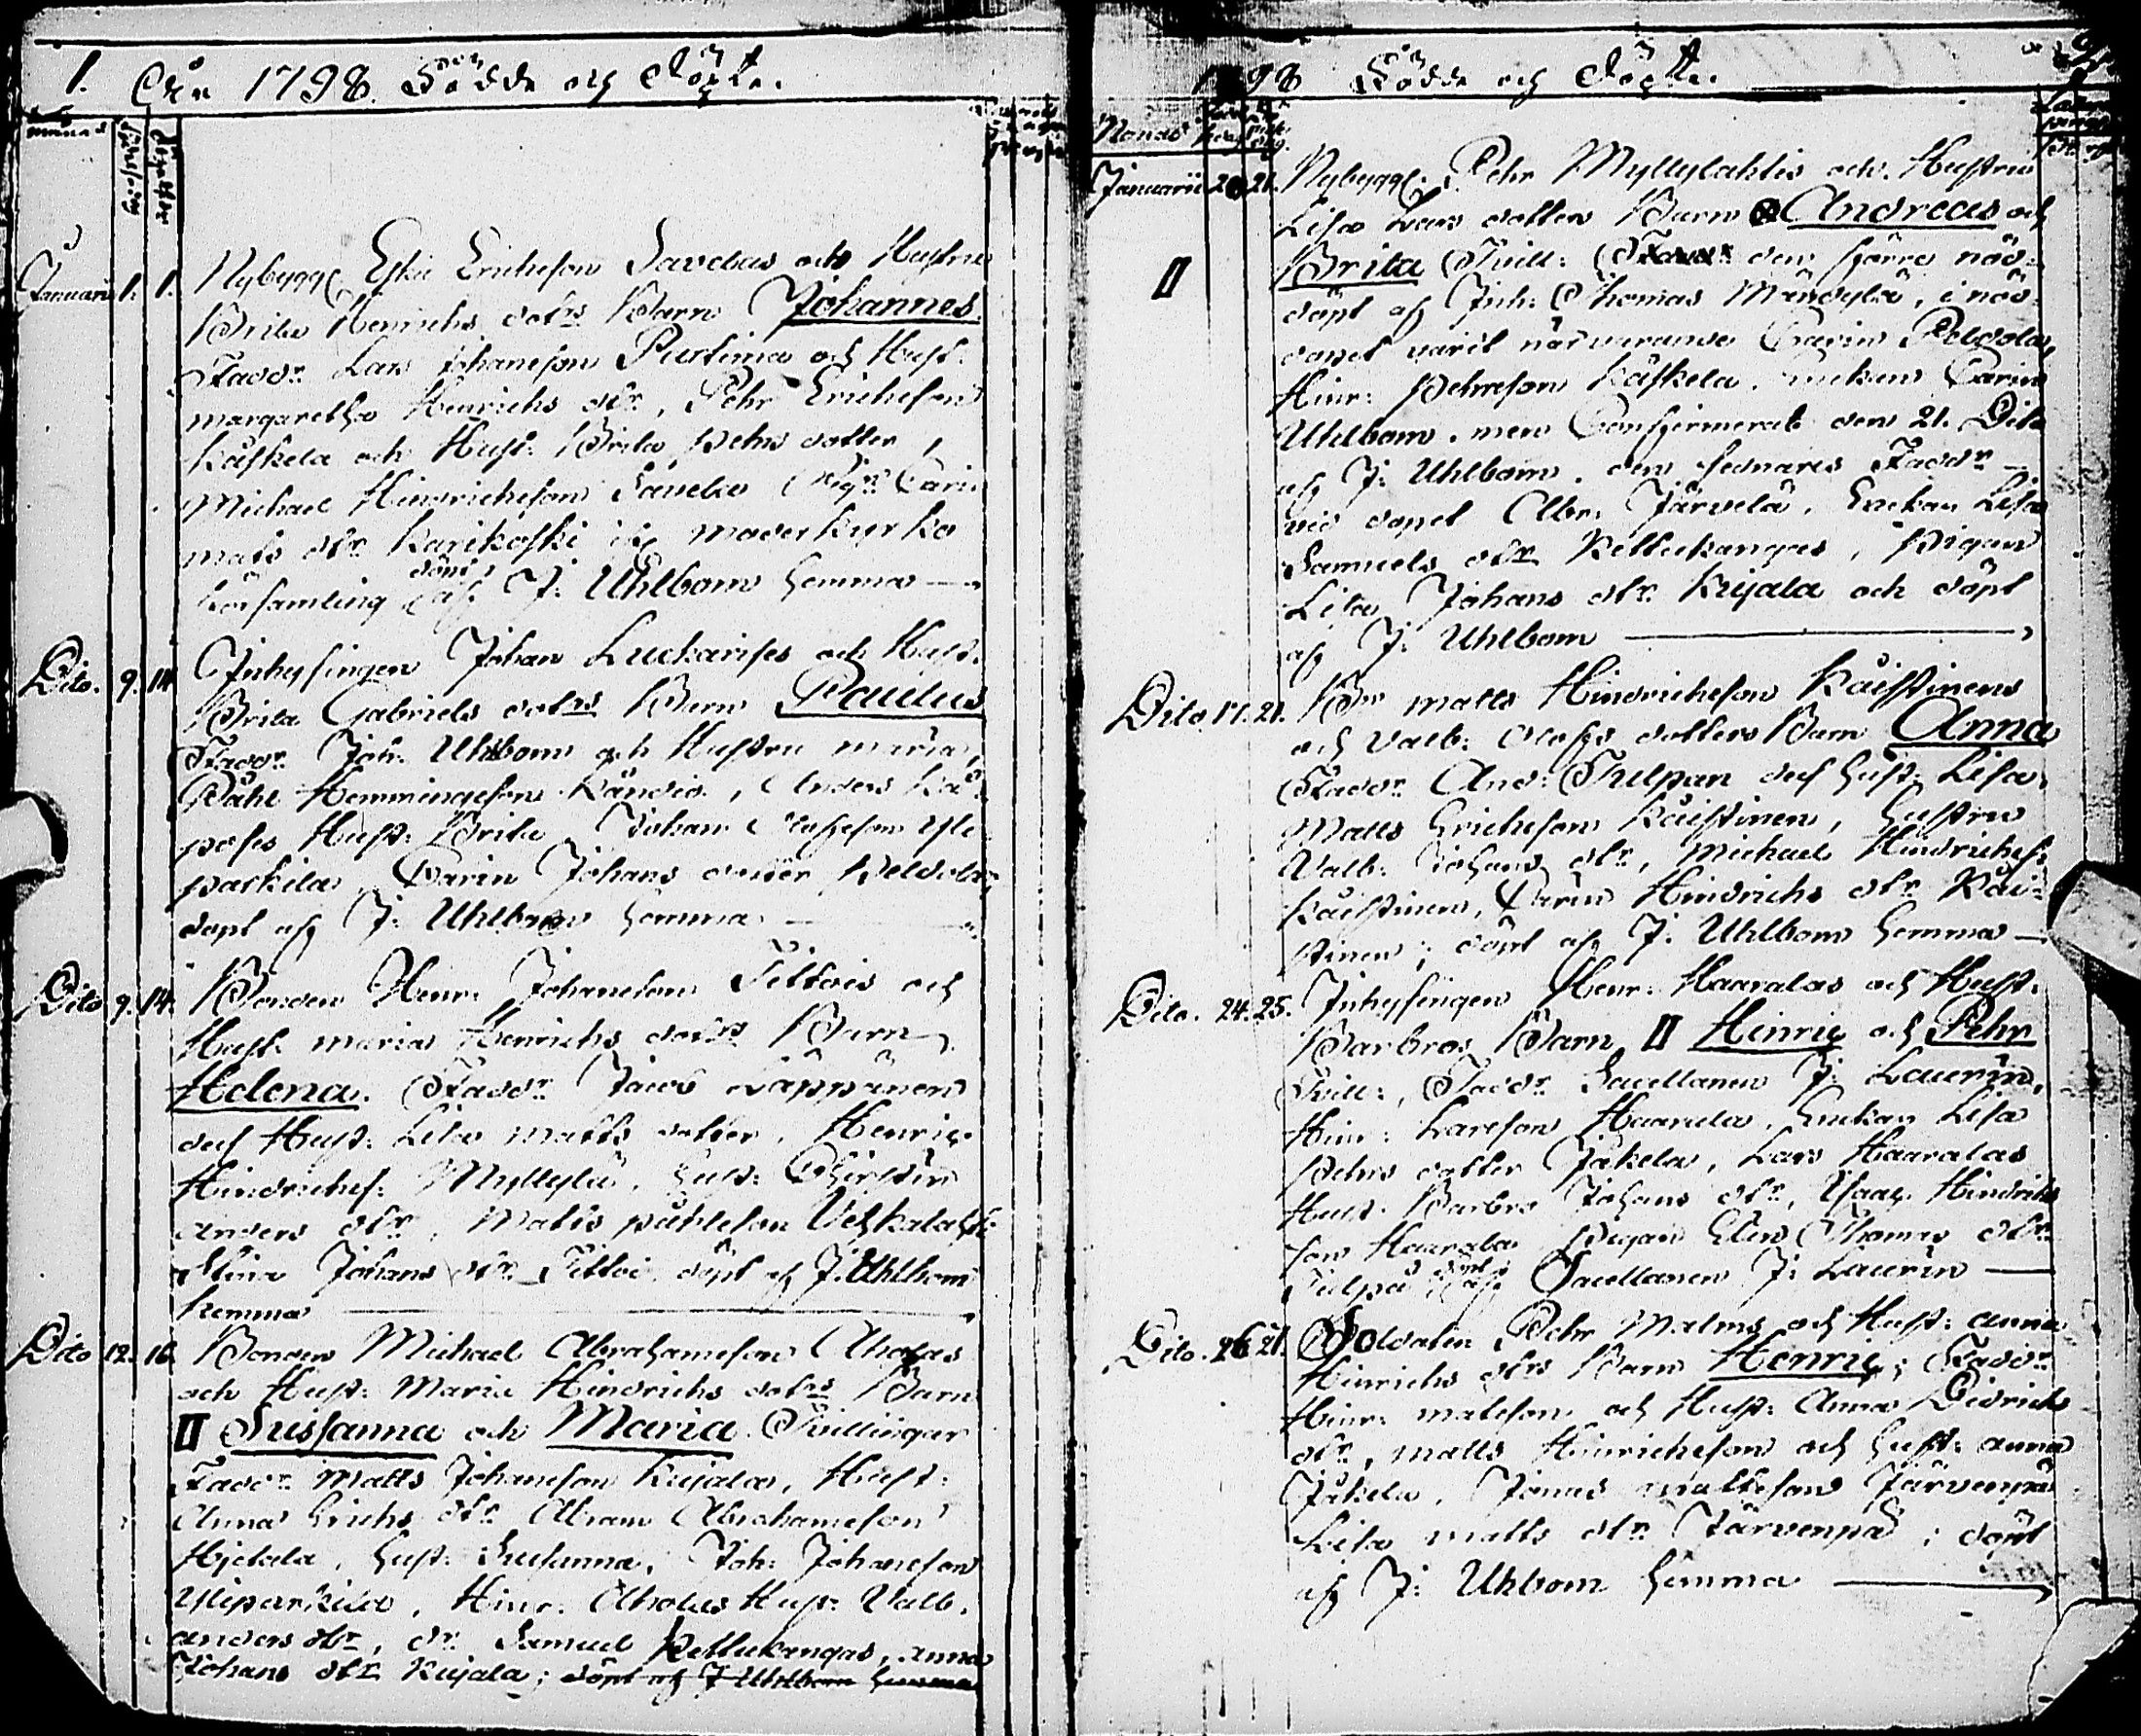 1. Åhr 1798. Födde och Döpte.
Månad
Januarii 1. 1. Nybygg. Eskil Erichsson Savelas och Hustru
Brita Henrichs dotrs Barn Johannes.
Faddr. Lars Johansson Purtima och Hust.
Margaretha Henrichs dtr, Pehr Erichsson
Käskela och Hust. Brita Pehrs dotter,
Michael Hindrichsson Saveka Pig. Carin
Mats dtr. Karikoski i moderkyrko
församling döpt af J: Uhlbom hemma —
Dito. 9. 14 Inhysingen Johan Luckarises och Hust.
Brita Gabriels dotrs Barn Paulus
Faddr. Joh: Uhlbom och Hustru Maria,
Påhl Hemmingsson Kändiä, Anders Kä-
poses Hust: Brita, Johan Olofsson Yli-
parkila, Carin Johans dotter Peldola,
döpt af J: Uhlbom hemma —
Dito 9. 14. Bonden Henr. Johansson Tiltois och
Hust. Maria Henrichs dotrs Barn
Helena. Faddr. Jacob Läppänen
dess Hust: Lisa Matts dotter, Henric
Hindrichss. Myllylä, Hust: Christin
Anders dtr, Matts Påhlsson Vehkalahti
Stina Johans dtr. Tiltoi döpt af J: Uhlbom
hemma —
Dito 12. 16. Bonden Michael Abrahamsson Aholas
och Hust: Maria Hindrichs dotrs Barn
II Susanna och Maria Tvillingar
Faddr. Matts Johansson Kujala, Hust:
Anna Erichs dtr. Abram Abrahamsson
Hietala, Hust: Susanna, Joh: Johansson
Yliparkila, Hinr: Aholas Hust: Valb.
Anders dtr, dr. Samuel Pellikangas, Anna
Johans dtr Kujala; döpt af J Uhlbom hemma
1798 Födde och Döpte.
Månad
Januarii 20 21. Nybygg. Pehr Myllylahtis och Hustru
Lisa Lars dotters Barn Andreas och
II Brita Tvill: den förre nöd-
döpt af Inh: Thomas Mändylä, i nöd-
dopet varit närvarande Carin Peldola,
Hinr: Pehrsson Käskela, enkan Carin
Uhlbom, men Confirmerat den 21. Dito
af J: Uhlbom. den sednares Faddr
vid dopet Abr: Järvelä, Enkan Lisa
Samuels dtr Pellikangas, Pigan
Lisa Johans dtr. Kujala och döpt
af J: Uhlbom —
Dito 17. 21. Bn Matts Hindrichsson Käistinens
och Valb: Olofs dotters Barn Anna
Faddr And: Tulpan dess Hust: Lisa,
Matts Erichsson Käistinen, Hustru
Valb: Johans dtr, Michael Hindrichss:
Käistinen, Carin Hindrichs dtr Käi-
stinen; döpt af J. Uhlbom hemma —
Dito. 24. 25. Inhysingen Henr: Haaralas och Hust:
Barbros Barn II Hinric och Pehr
Tvill:, Faddr Sacellanen J: Laurin,
Hinr: Larsson Haarala, Enkan Lisa
Pehrs dotter Jäkela, Lars Haaralas
Hust. Barbro Johans dtr, Isaac Hindrichs
son Haarala Pigan Elin Thomas dtr
Tulpa döpt af Sacellanen J: Laurin —
Dito. 26 21. Soldaten Pehr Malms och Hust: Anna
Hinrichs dtrs Barn Henric; Faddr.
Hinr: Matsson och Hust: Anna Didrichs
dtr, Matts Hinrichsson och Hust: Anna
Jäkela, Jonas Mattsson Järvenpä
Lisa Matts dtr. Järvenpä; döpt
af J: Uhlbom hemma —